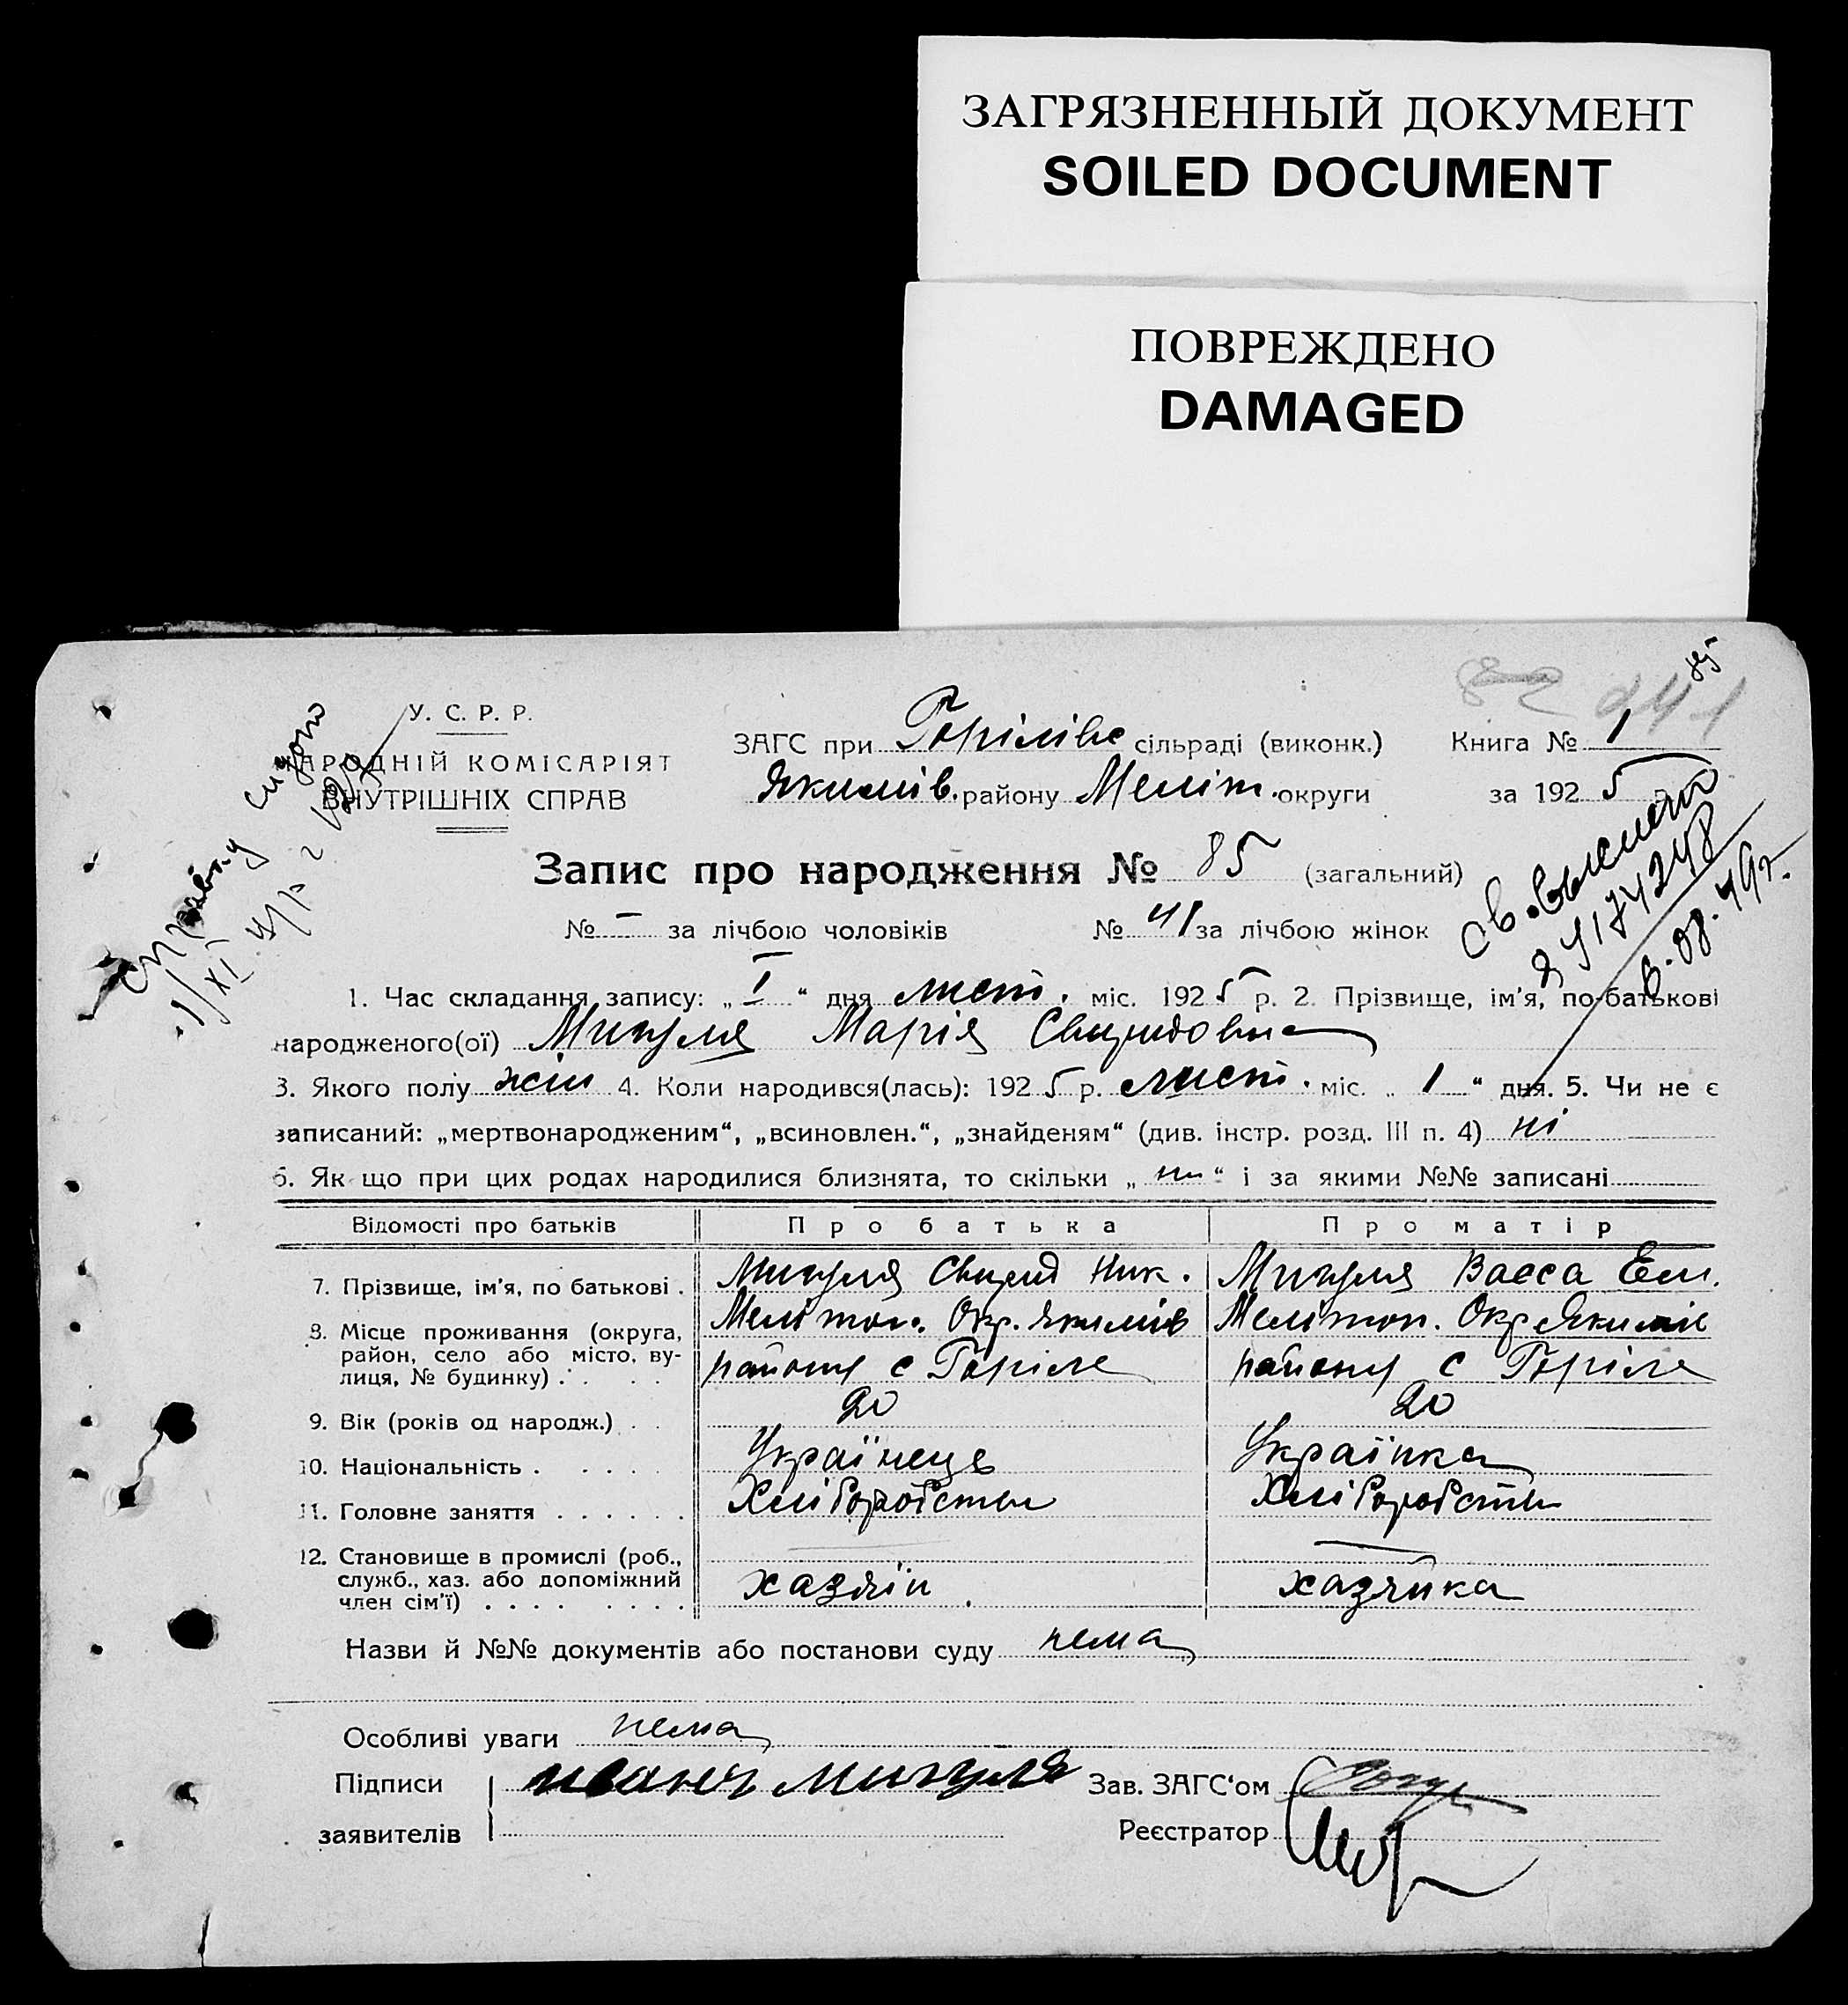 ЗАГРЯЗНЕННЫЙ ДОКУМЕНТ
SOILED DOCUMENT
ПОВРЕЖДЕНО
DAMAGED
У. С. Р. Р.
НАРОДНІЙ КОМІСАРІЯТ
ВНУТРІШНІХ СПРАВ
ЗАГС при Горілівс сільраді (виконк.) Книга № 1
Якимів. району Меліт. округи за 1925
Запис про народження № 85 (загальний)
№ – за лічбою чоловіків № 41 за лічбою жінок
1. Час складання запису: „ I “ дня лист. міс. 1925 р. 2. Прізвище, ім'я, по-батькові
народженого(ої) Микуля Марія Свиридовна
3. Якого полу жін 4. Коли народився(лась): 1925 р. лист. міс. „ 1 “ дня. 5. Чи не є
записаний: „мертвонародженим“, „всиновлен.“, „знайденям“ (див. інстр. розд. III п. 4) ні
6. Як що при цих родах народилися близнята, то скільки „ “ і за якими №№ записані
Відомості про батьків Про батька Про матір
7. Прізвище, ім'я, по батькові . Микуля Свирид Ник. Микуля Васса Ем.
8. Місце проживання (округа, район, село або місто, вулиця, № будинку) . Мелітоп. Окр. Якимів Мелітоп. Окр Якимів
району с Горіле району с Горіле
9. Вік (років од народж.) . . 20 20
10. Національність . . . . . Українець Українка
11. Головне заняття . . . . . . Хліборобство Хліборобство
12. Становище в промислі (роб., служб., хаз. або допоміжний член сім'ї) . . . . . . . . хазяїн. хазяйка
Назви й №№ документів або постанови суду нема
Особливі уваги нема
Підписи заявителів Иванъ Микуля
Зав. ЗАГС'ом
Реєстратор